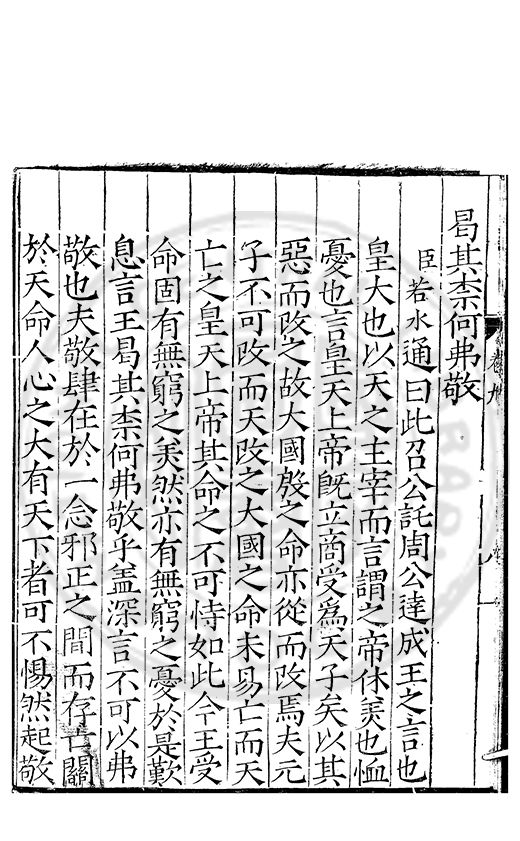 曷其柰何弗敬
臣若水通曰此召公託周公達成王之言也
皇大也以天之主宰而言謂之帝休美也恤
憂也言皇天上帝旣立商受爲天子矣以其
惡而改之故大國殷之命亦從而改焉夫元
子不可改而天改之大國之命未易亡而天
亡之皇天上帝其命之不可恃如此今王受
命固有無窮之美然亦有無窮之憂於是歎
息言王曷其柰何弗敬乎盖深言不可以弗
敬也夫敬肆在於一念邪正之間而存亡關
於天命人心之大有天下者可不惕然起敬